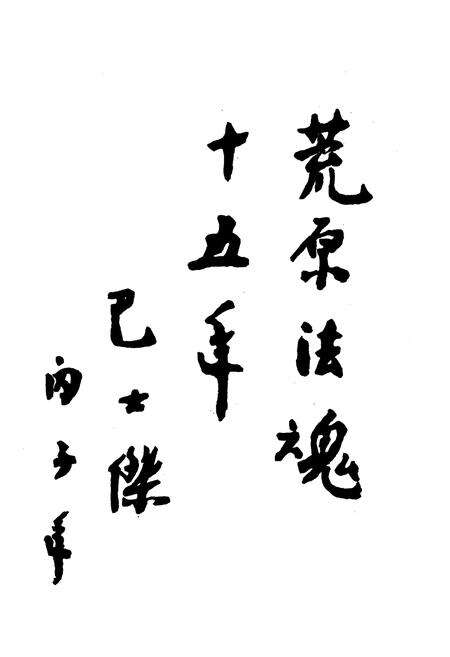 荒原法魂
十五年
巴士傑
丙子年